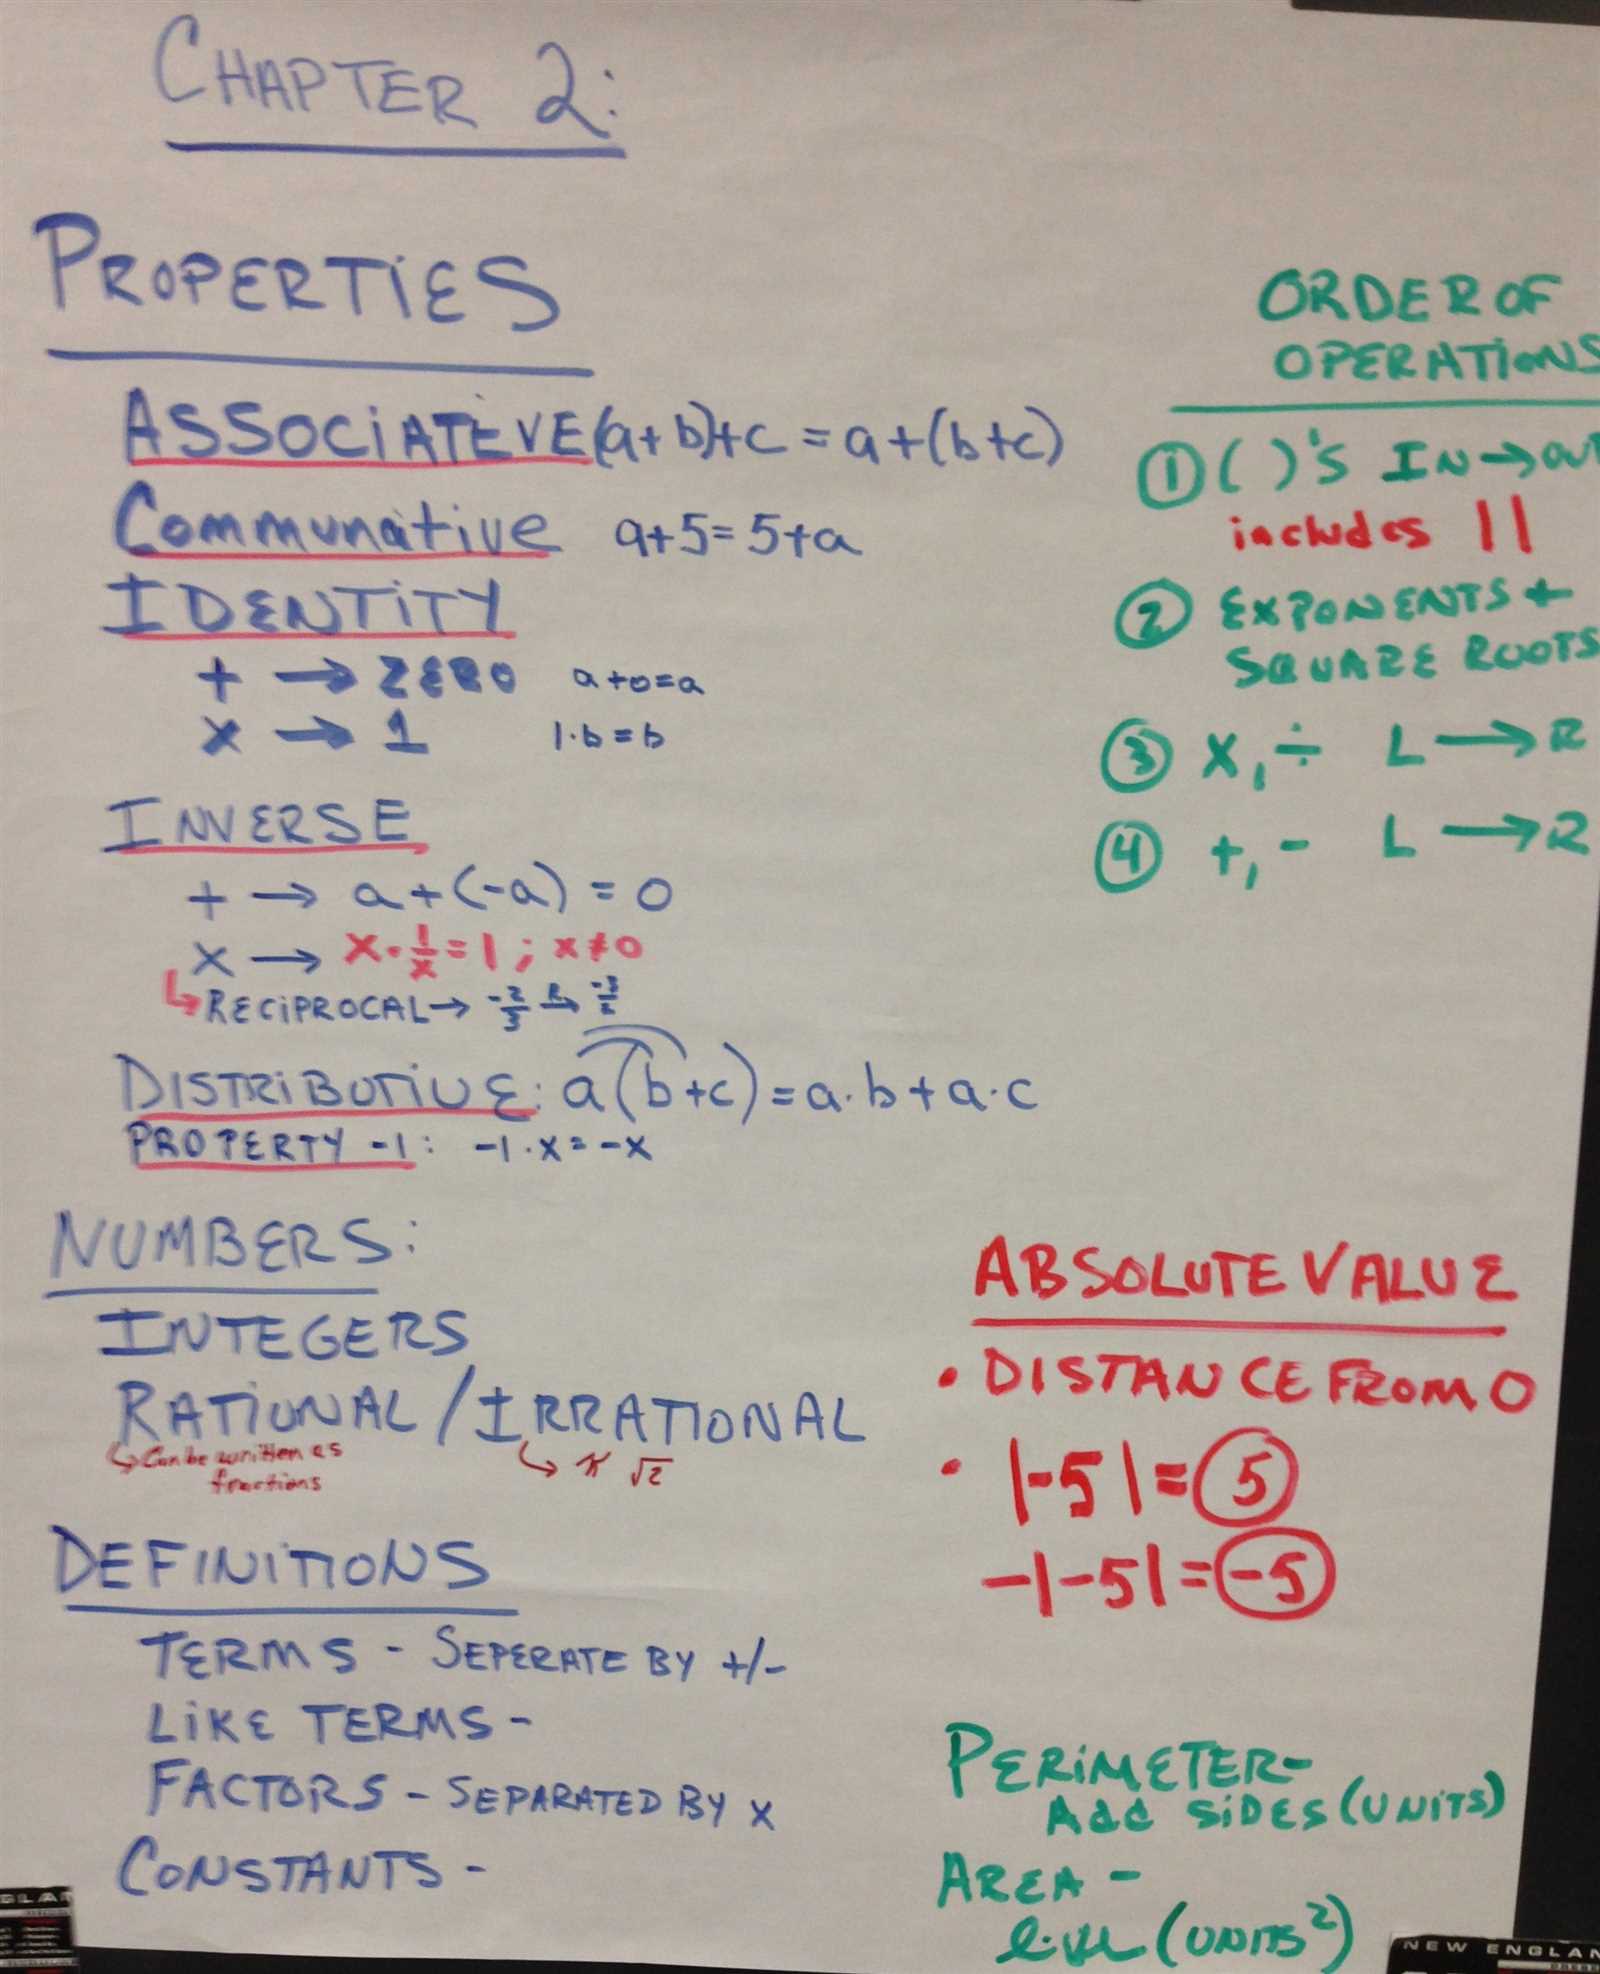 CHAPTER 2:
PROPERTIES
ASSOCIATEVE (a+b)+c = a+(b+c)
Communative a+5=5+a
IDENTITY
+ → ZERO a+0=a
x → 1 1·b=b
INVERSE
+ → a+(-a) = 0
x → x·1/x=1; x≠0
↳ RECIPROCAL → -2/3 R→ -3/2
DISTRIBUTIVE: a(b+c)=a·b+a·c
PROPERTY -1: -1·x=-x
NUMBERS:
INTEGERS
RATIONAL/IRRATIONAL
↳ Can be written as
fractions
↳ π √2
DEFINITIONS
TERMS - SEPERATE BY +/-
LIKE TERMS -
FACTORS - SEPARATED BY x
CONSTANTS -
ORDER OF
OPERATIONS
① ( )'s IN→out
includes ||
② EXPONENTS +
SQUARE ROOTS
③ x,÷ L→R
④ +,- L→R
ABSOLUTE VALUE
• DISTANCE FROM 0
• |-5|=5
-|-5|=-5
PERIMETER-
Add SIDES (UNITS)
AREA -
(UNITS²)
NEW ENGLAN